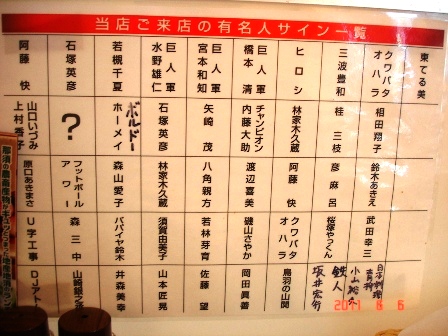 当店ご来店の有名人サイン一覧
東てる美
クワバタオハラ
三波豊和
ヒロシ
巨人軍 橋本 清
巨人軍 宮本和知
巨人軍 水野雄仁
若槻千夏
石塚英彦
阿藤 快
相田翔子
桂 三枝
林家木久蔵
チャンピオン 内藤大助
矢崎 茂
石塚英彦
ボルドー
ホーメイ
?
山口いづみ
上村香子
鈴木あきえ
彦麻呂
阿藤 快
渡辺喜美
八角親方
林家木久蔵
森山愛子
フットボールアワー
原口あきまさ
武田幸三
桜塚やっくん
クワバタオハラ
磯山さやか
若林芽育
須賀由美子
パパイヤ鈴木
森三中
U字工事
日本料理
小山裕久
鉄人
坂井宏行
鳥羽の山関
岡田眞善
佐藤 望
山本匠晃
井森美幸
山崎銀之丞
DJアト
2011 8 5